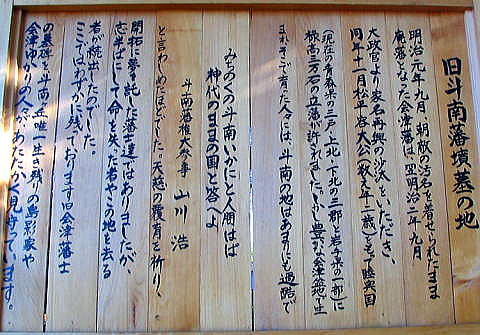 旧斗南藩墳墓の地
明治元年九月、朝敵の汚名を着せられたまま
廃藩となった会津藩は、翌明治二年九月
大政官より家名再興の沙汰をいただき、
同年十一月松平容大公(数え年二歳)をもって陸奥国
(現在の青森県の三戸、上北、下北の三郡と岩手県の一部)に
禄高三万石の立藩が許されました。しかし豊かな会津盆地で生
まれそして育った人々には、斗南の地はあまりにも過酷で
みちのくの斗南いかにと人問はば
神代のままの国と答へよ
斗南藩権大参事 山川 浩
と言わしめたほどでした。天愁の覆育を祈り、
開拓に夢を託した藩士達ではありましたが、
志半ばにして命を失った者やこの地を去る
者が続出したのでした。
ここではわずかに残っております旧会津藩士
の墓碑を斗南ヶ丘唯一生き残りの島影家や
会津ゆかりの人が、あたたかく見守っています。